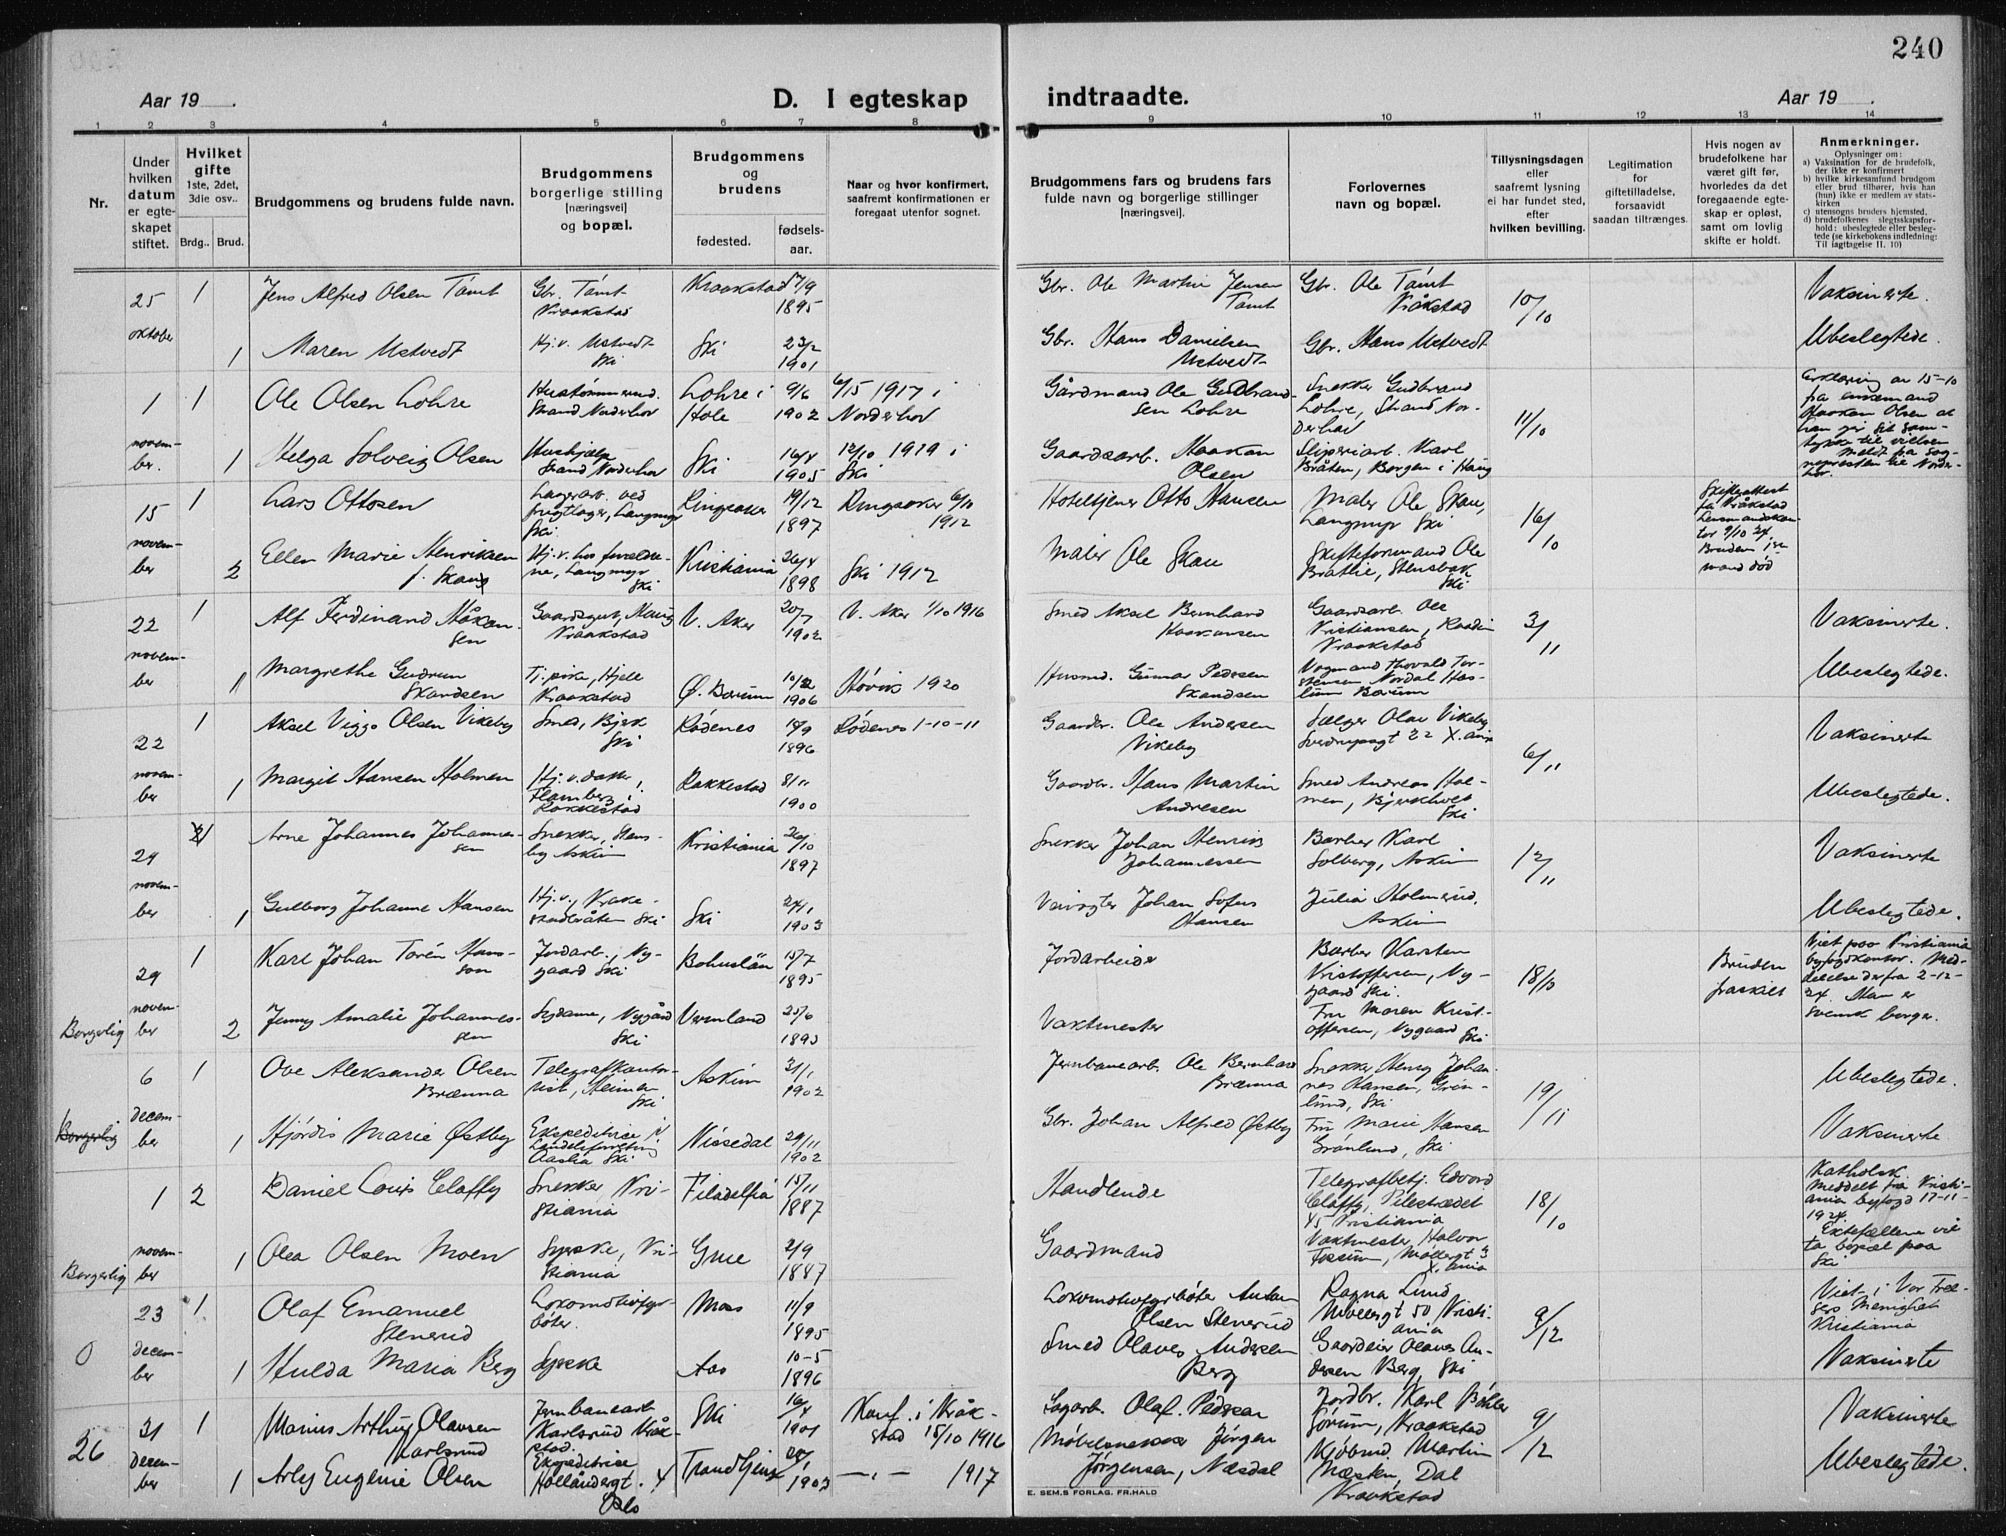 240
Aar 19 .
D. I egteskap indtraadte.
Aar 19 .
1 2 3 4 5 6 7 8 9 10 11 12 13 14
Nr.
Under hvilken datum er egte-skapet stiftet.
Hvilket gifte
1ste, 2det, 3die osv..
Brdg.. Brud.
Brudgommens og brudens fulde navn.
Brudgommens borgerlige stilling [næringsvei] og bopæl.
Brudgommens og brudens
fødested.
fødsels-aar.
Naar og hvor konfirmert, saafremt konfirmationen er foregaat utenfor sognet.
Brudgommens fars og brudens fars fulde navn og borgerlige stillinger [næringsvei].
Forlovernes navn og bopæl.
Tillysningsdagen eller saafremt lysning ei har fundet sted, efter hvilken bevilling.
Legitimation for giftetilladelse, forsaavidt saadan tiltrænges.
Hvis nogen av brudefolkene har været gift før, hvorledes da det foregaaende egte-skap er opløst, samt om lovlig skifte er holdt.
Anmerkninger.
Oplysninger om:
a) Vaksination for de brudefolk, der ikke er konfirmert
b) hvilke kirkesamfund brudgom eller brud tilhører, hvis han (hun) ikke er medlem av stats-kirken
c) utensogns bruders hjemsted.
d) brudefolkenes slegtsskapsfor-hold: ubeslegtede eller besleg-tede (se kirkebokens indledning: Til iagttagelse II. 10)
25 oktober 1 Jens Alfred Olsen Tomt Gbr. Tomt Kraakstad Kraakstad 17/9 1895 Gbr. Ole Martin Jensen Tomt Gbr. Ole Tomt Kråkstad 10/10 Vaksinerte.
1 Maren Ustvedt Hj.v. Ustvedt Ski Ski 23/2 1901 Gbr. Hans Danielsen Ustvedt Gbr. Hans Ustvedt Ubeslegtede.
1 novem-ber. 1 Ole Olsen Lohre Strand Norderhov Lohre i Hole 9/6 1902 1917 i Norderhov Gårdmand Ole Gudbrand-sen Lohre Snekker Gudbrand Lohre, Strand Nor-derhov 11/10 Erklæring av 15-10 fra enkemand Haakon Olsen at han gir sit sam-tykke til vielsen
1 Helga Solveig Olsen Hushjælp Strand Norderhov Ski 16/4 1905 12/10 1919 i Ski Gaardsarb. Haakon Olsen Sliperiarb. Karl Bråten, Borgen i Haug
15 novem-ber 1 Lars Ottosen Lagerarb. ved frugtlager, Langmyr Ski Ringsaker 19/12 1897 Ringsaker 6/10 1912 Hoteltjener Otto Hansen Maler Ole Skau, Langmyr Ski 16/10 Skifteattest fra Kråkstad Lensmandskon-tor 9/10 24, Brudens 1ste mand død
2 Ellen Marie Henriksen f. Skau Hj.v. hos foreldre-ne, Langmyr Ski Kristiania 26/4 1898 Ski 1912 Maler Ole Skau Skifteformand Ole Brathe, Stensbak Ski
22 novem-ber 1 Alf Ferdinand Håkon-sen Gaardsgut, Haug Kraakstad V. Aker 20/7 1902 V. Aker 1/10 1916 Smed Aksel Bernhard Haakonsen Gaardsarb. Ole Kristiansen, Kraakstad 3/11 Vaksinerte.
1 Margrethe Gudrun Skandsen Tj.pike, Hjele Kraakstad Ø. Bærum 10/2 1906 Høvik 1920 Husmd. Gunnar Pedersen Skandsen Vognmand Thorvald Tor-stensen Nordal Has-lum Bærum Ubeslegtede.
22 novem-ber 1 Aksel Viggo Olsen Vikeby Smed, Bjerk Ski Rødenes 14/9 1896 Rødenes 1-10-11 Gaardbr. Ole Andersen Vikeby Sælger Olav Vikeby Sverdrupsgt 22 X.ania 6/11 Vaksinerte
1 Margit Hansen Holmen Rakkestad Rakkestad 8/11 1900 Gaardbr. Hans Martin Andresen Smed Andreas Hol-men, Ski Ubeslegtede.
29 novem-ber 1 Arne Johannes Johannes-sen Snekker, Stens-by Askim Kristiania 26/10 1897 Snekker Johan Henrik Johannessen Barber Karl Solberg, Askim 12/11 Vaksinerte
1 Gulborg Johanne Hansen Hj.v., Krake-stadbråten Ski Ski 24/1 1903 Johan Sofus Hansen Julia Holmerud, Askim Ubeslegtede.
Borgerlig 29 novem-ber 1 Karl Johan Torén Hans-son Jordarb., Ny-gaard Ski Bohuslän 15/7 1895 Jordarbeider Barber Karsten Kristoffersen, Ny-gaard Ski. 18/10 Bruden fraskilt Viet paa Kristiania byfogdkontor. Med-delelse derfra 2-12-24. Man er svensk borger.
2 Jenny Amalie Johannes-sen Sydame, Nygård Ski Vermland 25/6 1893 Vaktmester Fru Maren Krist-offersen, Nygaard Ski
Borgerlig 6 decem-ber 1 Ove Aleksander Olsen Brænna Telegrafkontor-ist, Heimen Ski Askim 31/1 1902 Jernbanearb. Ole Bernhard Brænna Snekker, Henry Johan-nes Hansen, Grøn-lund, Ski 19/11 Ubeslegtede.
1 Hjördis Marie Østby Ekspeditrice Aaslia Ski Nissedal 29/11 1902 Gbr. Johan Alfred Østby Fru Marie Hansen Grønlund, Ski Vaksinerte
Borgerlig 1 novem-ber 2 Daniel Louis Claffy Snekker, Kri-stiania Filadelfia 15/11 1887 Handlende Telegrafbetj. Edvard Claffy, Pilestrædet 45 Kristiania 18/10 Katholsk Meddelt fra Kristi-ania byfogd 17-11-1924. Ektefællene vil ta bopæl paa Ski
1 Olea Olsen Moen Syerske, Kri-stiania Grue 2/9 1887 Gaardmand Vaktmester, Halvor Fossum, Møllergt 3 X.ania
0 23 decem-ber 1 Olaf Emanuel Stenerud Lokomotivfyr-bøter. Moss 11/9 1895 Lokomotivfyrbøter Anton Olsen Stenerud Ragna Lund Møllergt 50 Kristi-ania 9/12 Viet i Vor Frel-sers Menighet Kristiania
1 Hulda Maria Berg Syerske Aas 10-5 1896 Smed Olaves Andersen Berg Gaardeier Olaves An-dersen Berg, Ski Vaksinerte
26 31 Desem-ber 1 Marius Arthur Olavsen Karlsrud Jernbanearb. Karlsrud Kråk-stad. Ski 16/4 1901 Konf. i Kråk-stad 15/10 1916 Sagarb. Olaf Pedersen Jordbr. Karl Böhler Sørum, Kraakstad 9/12 Vaksinerte
1 Arly Eugenie Olsen Ekspeditrice Hollændergt. 4 Oslo Trondhjem 20/1 1903 —,— 1917 Møbelsnekker Jørgen Jørgensen, Næsdal Kjøbmd. Martin Næsken, Dal Kraakstad Ubeslegtede.
E. SEM.S FORLAG. FR.HALD